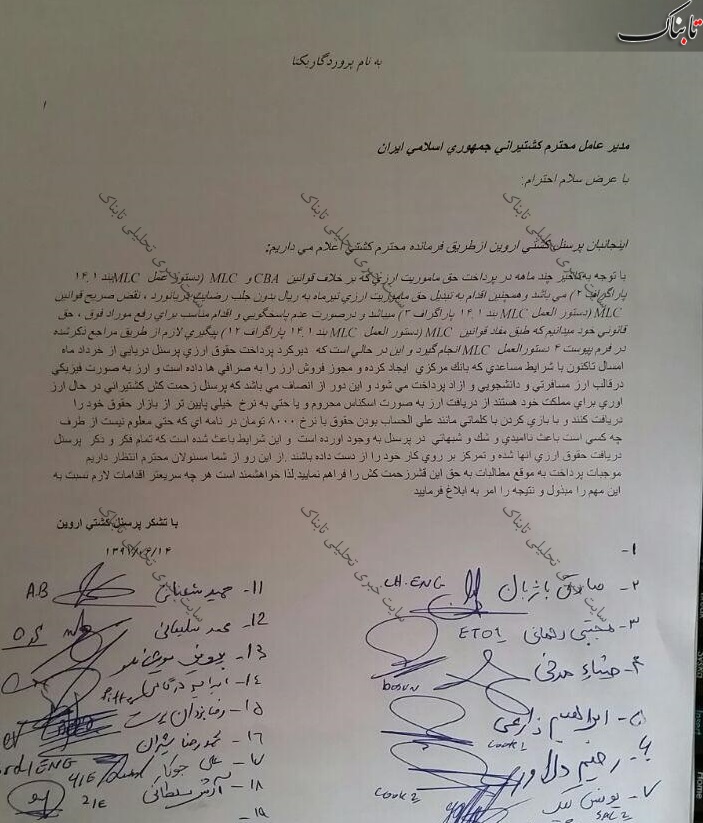 تابناک
به نام پروردگار یکتا
مدیر عامل محترم کشتیرانی جمهوری اسلامی ایران
با عرض سلام احترام:
اینجانبان پرسنل کشتی اروین از طریق فرمانده محترم کشتی اعلام می داریم:
با توجه به تاخیر چند ماهه در پرداخت حق ماموریت ارزی که بر خلاف قوانین CBA و MLC (دستور عمل MLC بند ۱۴.۱
پاراگراف ۲) می باشد و همچنین اقدام به تبدیل حق ماموریت ارزی تیرماه به ریال بدون جلب رضایت دریانورد ، نقض صریح قوانین
MLC (دستور العمل MLC بند ۱۴.۱ پاراگراف ۲) میباشد و درصورت عدم پاسخگویی و اقدام مناسب برای رفع موراد فوق ، حق
قانونی خود میدانیم که طبق مفاد قوانین MLC (دستور عمل MLC بند ۱۴.۱ پاراگراف ۱۲) پیگیری لازم از طریق مراجع ذکرشده
در فرم پیوست ۴ دستورالعمل MLC انجام گیرد و این در حالی است که دیرکرد پرداخت حقوق ارزی پرسنل دریایی از خرداد ماه
امسال تاکنون با شرایط مساعدی که بانک مرکزی ایجاد کرده و مجوز فروش ارز را به صرافی ها داده است و ارز به صورت فیزیکی
درقالب ارز مسافرتی و دانشجویی و ازاد پرداخت می شود و این دور از انصاف می باشد که پرسنل زحمت کش کشتیرانی در حال ارز
اوری برای مملکت خود هستند از دریافت ارز به صورت اسکناس محروم و یا حتی به نرخ خیلی پایین تر از بازار حقوق خود را
دریافت کنند و با بازی کردن با کلماتی مانند علی الحساب بودن حقوق با نرخ ۸۰۰۰ تومان در نامه ای که حتی معلوم نیست از طرف
چه کسی است باعث ناامیدی و شک و شبهاتی در پرسنل به وجود اورده است و این شرایط باعث شده است که تمام فکر و ذکر پرسنل
دریافت حقوق ارزی انها شده و تمرکز بر روی کار خود را از دست داده باشند .از این رو از شما مسئولان محترم انتظار داریم
موجبات پرداخت به موقع مطالبات به حق این قشرزحمت کش را فراهم نمایید.لذا خواهشمند است هر چه سریعتر اقدامات لازم نسبت به
این مهم را مبذول و نتیجه را امر به ابلاغ فرمایید
با تشکر پرسنل کشتی اروین
سایت خبری تحلیلی تابناک
۱-
۲- صادق باژبان CH.ENG
۳- مجتبی رحمانی ETO1
۴- ضیاء مدنی bosun
۵- ابراهیم زارعی COOK1
۶- رحیم دلاور COOK2
۷- یونس
۱۱- حمید شعبانی A.B
۱۲- محمد سلیمانی O.S
۱۳- پرویز
۱۴-
۱۵- رضا یزدان پرست
۱۶- محمدرضا
۱۷- علی
۱۸- آرش سلطانی 2/E
۱۹-